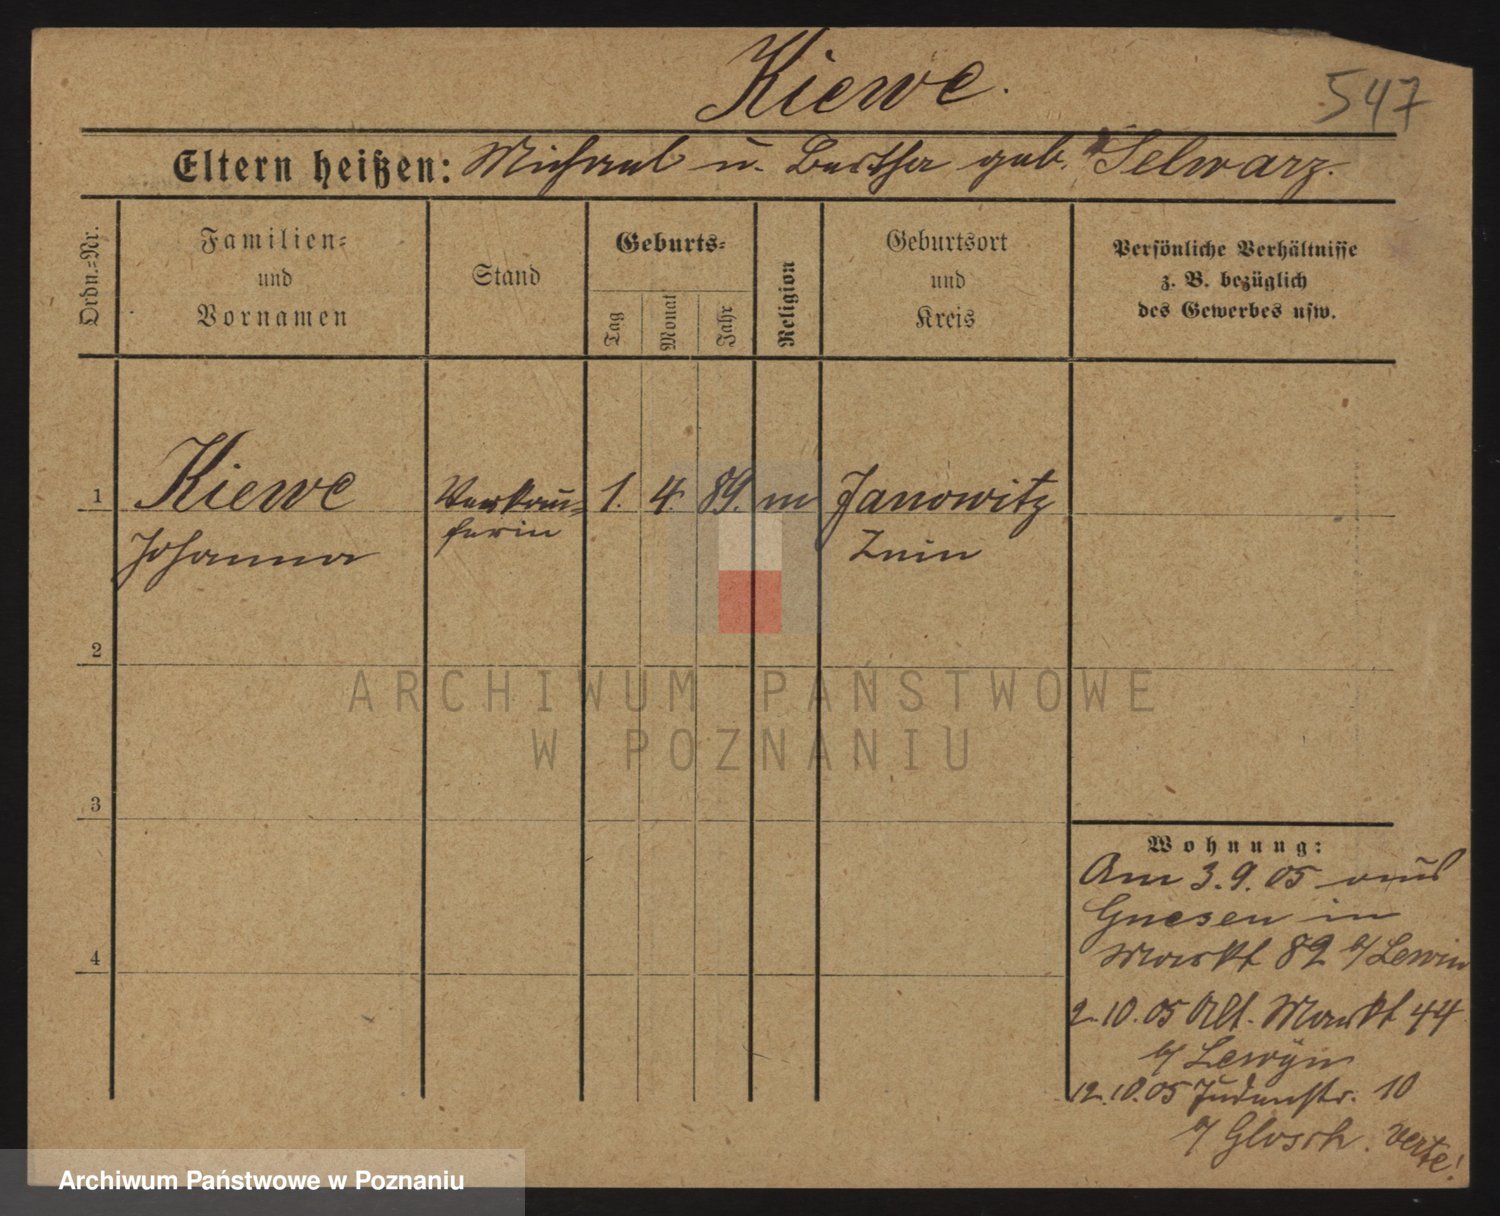 Kiewe.
547
Eltern heißen: Michael u. Bertha geb. Selwarz.
Ordn.-Nr.
Familien-
und
Vornamen
Stand
Geburts-
Tag
Monat
Jahr
Religion
Geburtsort
und
Kreis
Persönliche Verhältnisse
z. B. bezüglich
des Gewerbes usw.
1 Kiewe Verkäu- 1. 4. 89. m Janowitz
Johanna ferin Znin
2
3
4
ARCHIWUM PAŃSTWOWE
W POZNANIU
Wohnung:
Am 3.9.05 aus
Gnesen in
Markt 82 b/ Lewin
2.10.05 Alt. Markt 44
b/ Lewyn
12.10.05 Judenstr. 10
b/ Glosch. Verte!
Archiwum Państwowe w Poznaniu